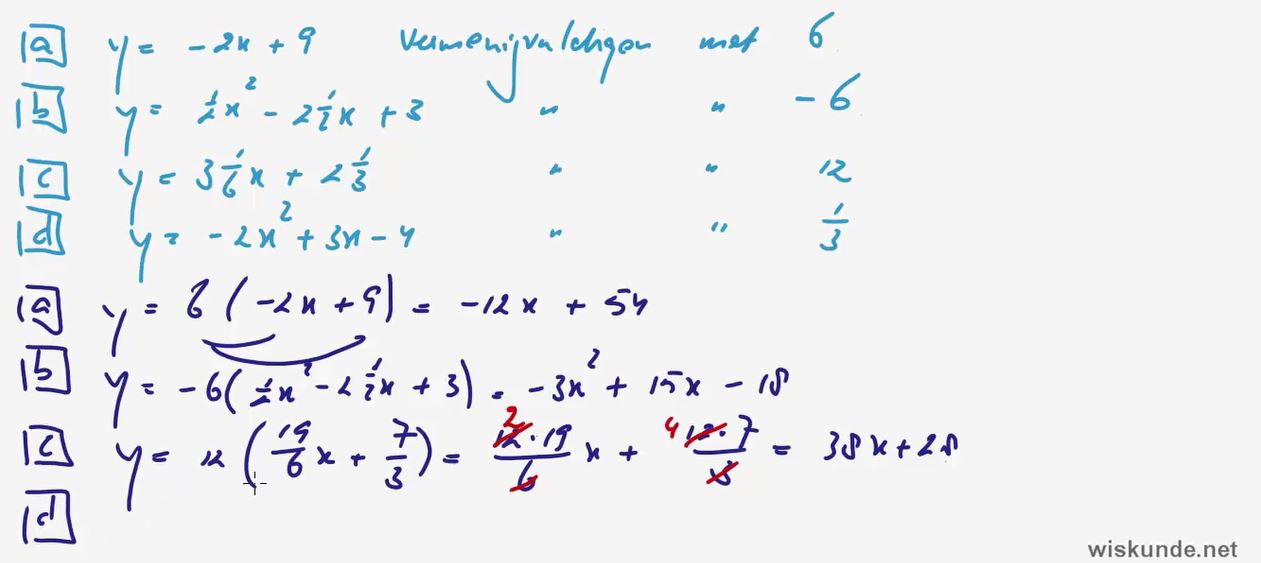 a y = -2x + 9 vermenigvuldigen met 6
b y = ½x² - 2½x + 3 " " -6
c y = 3⅙x + 2⅓ " " 12
d y = -2x² + 3x - 4 " " ⅓
a y = 6(-2x + 9) = -12x + 54
b y = -6(½x² - 2½x + 3) = -3x² + 15x - 18
c y = 12(19/6 x + 7/3) = 2 12·19/6 x + 4 12·7/3 = 38x + 28
d
wiskunde.net